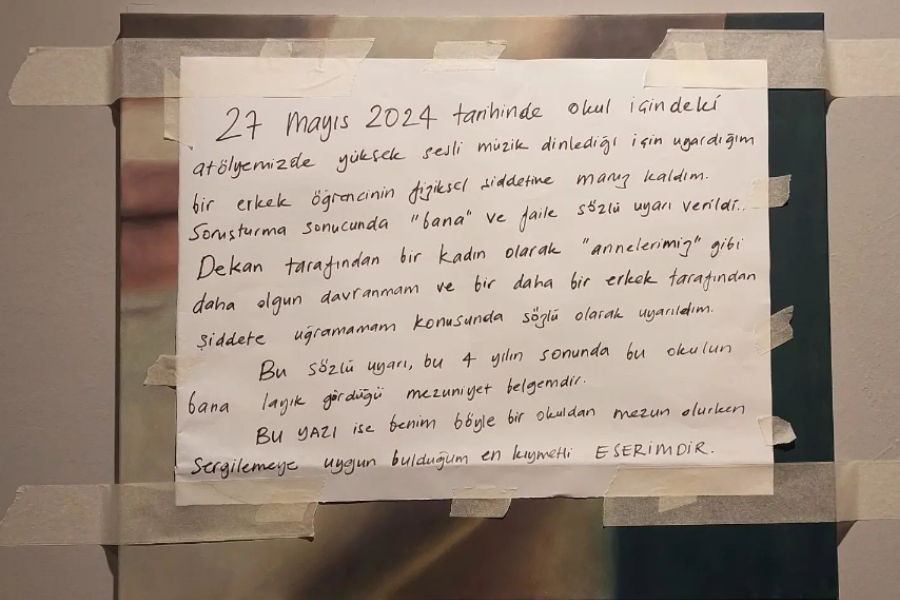 27 Mayıs 2024 tarihinde okul içindeki
atölyemizde yüksek sesli müzik dinlediği için uyardığım
bir erkek öğrencinin fiziksel şiddetine maruz kaldım.
Soruşturma sonucunda "bana" ve faile sözlü uyarı verildi..
Dekan tarafından bir kadın olarak "annelerimiz" gibi
daha olgun davranmam ve bir daha bir erkek tarafından
şiddete uğramamam konusunda sözlü olarak uyarıldım.
Bu sözlü uyarı, bu 4 yılın sonunda bu okulun
bana layık gördüğü mezuniyet belgemdir.
BU YAZI ise benim böyle bir okuldan mezun olurken
Sergilemeye uygun bulduğum en kıymetli ESERİMDİR.